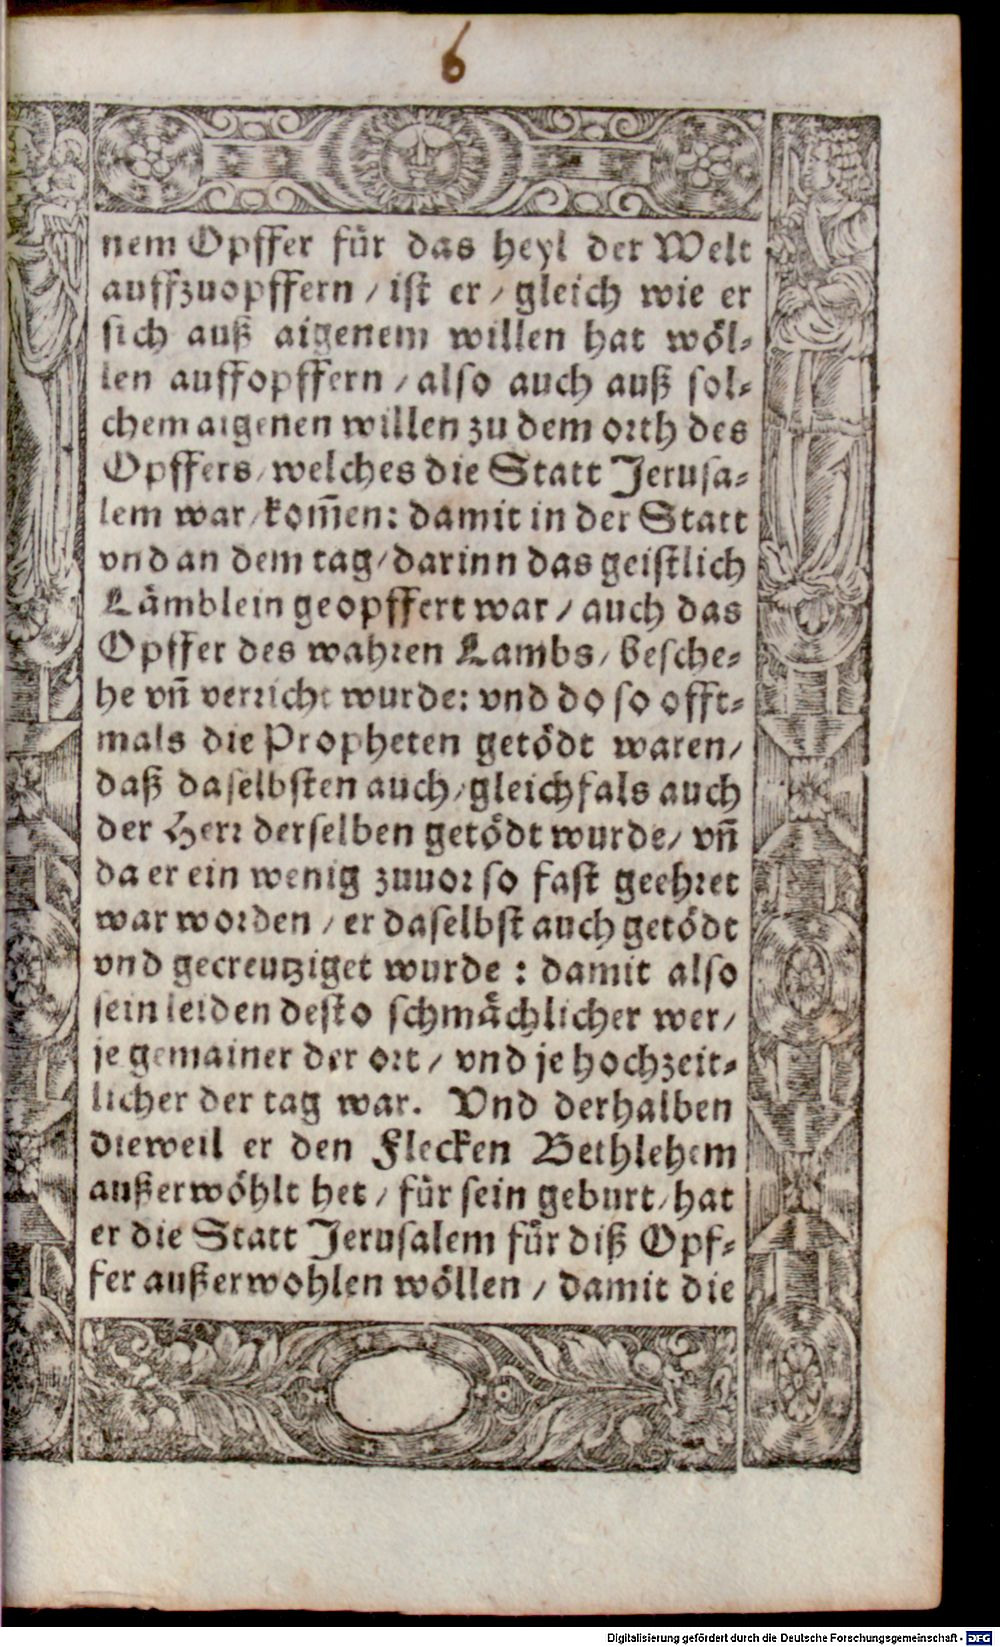 6
nem Opffer für das heyl der Welt
auffzuopffern / ist er / gleich wie er
sich auß aigenem willen hat wöl-
len auffopffern / also auch auß sol-
chem aigenen willen zu dem orth des
Opffers / welches die Statt Jerusa-
lem war / kom̄en: damit in der Statt
vnd an dem tag / darinn das geistlich
Lämblein geopffert war / auch das
Opffer des wahren Lambs / besche-
he vn̄ verricht wurde: vnd do so offt-
mals die Propheten getödt waren /
daß daselbsten auch / gleichfals auch
der Herr derselben getödt wurde / vn̄
da er ein wenig zuuor so fast geehret
war worden / er daselbst auch getödt
vnd gecreutziget wurde : damit also
sein leiden desto schmächlicher wer /
je gemainer der ort / vnd je hochzeit-
licher der tag war. Vnd derhalben
dieweil er den Flecken Bethlehem
außerwöhlt het / für sein geburt / hat
er die Statt Jerusalem für diß Opf-
fer außerwohlen wöllen / damit die
Digitalisierung gefördert durch die Deutsche Forschungsgemeinschaft - DFG